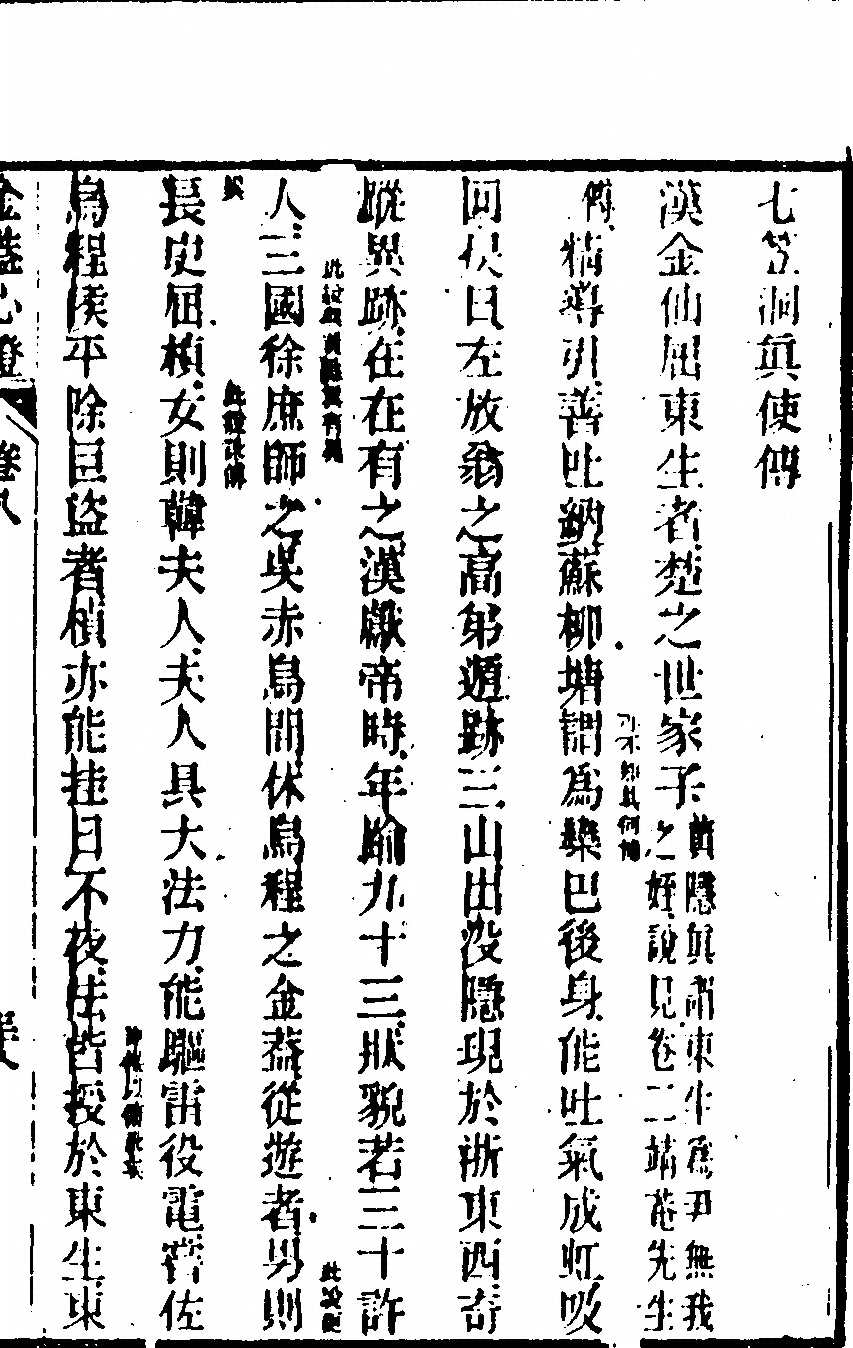 七笠洞眞使傳
漢金仙屈東生者楚之世家子黃隱眞謂東生爲尹無我之姪說見卷二靖菴先生
傳精導引善吐納蘇柳塘謂爲欒巴後身能吐氣成虹吸
回伏日左放翁之高弟遁跡三山出沒隱現於浙東西奇
蹤異跡在在有之漢獻帝時年踰九十三狀貌若三十許
人三國徐庶師之吳赤烏間休烏程之金葢從遊者男則
長史屈楨女則韓夫人夫人具大法力能驅雷役電嘗佐
烏程侯平除巨盜者楨亦能挂日不夜法皆授於東生東
金葢心燈 卷八